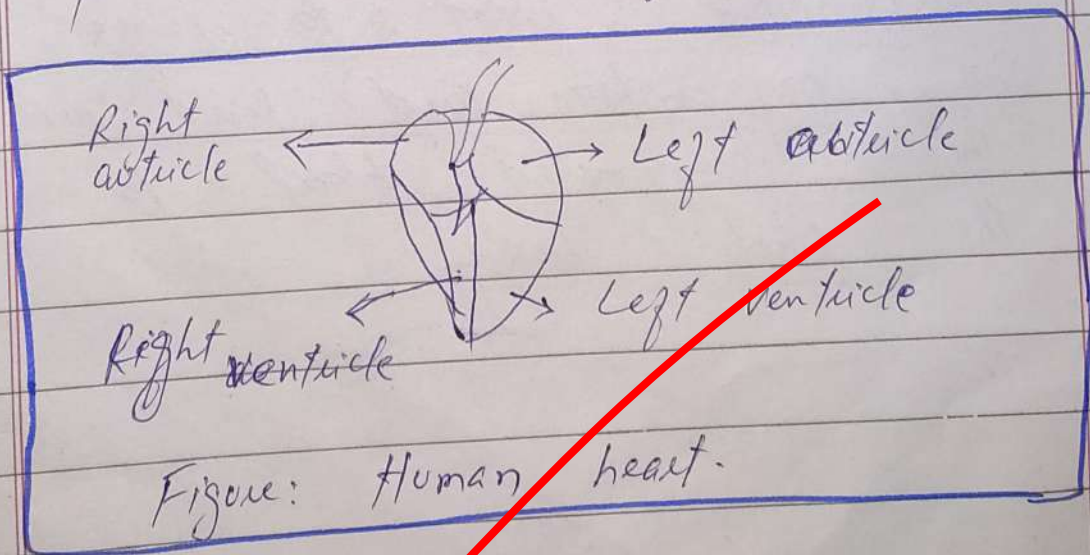 Right
abtricle
Left abtricle
Right ventricle
Left ventricle
Figure: Human heart.